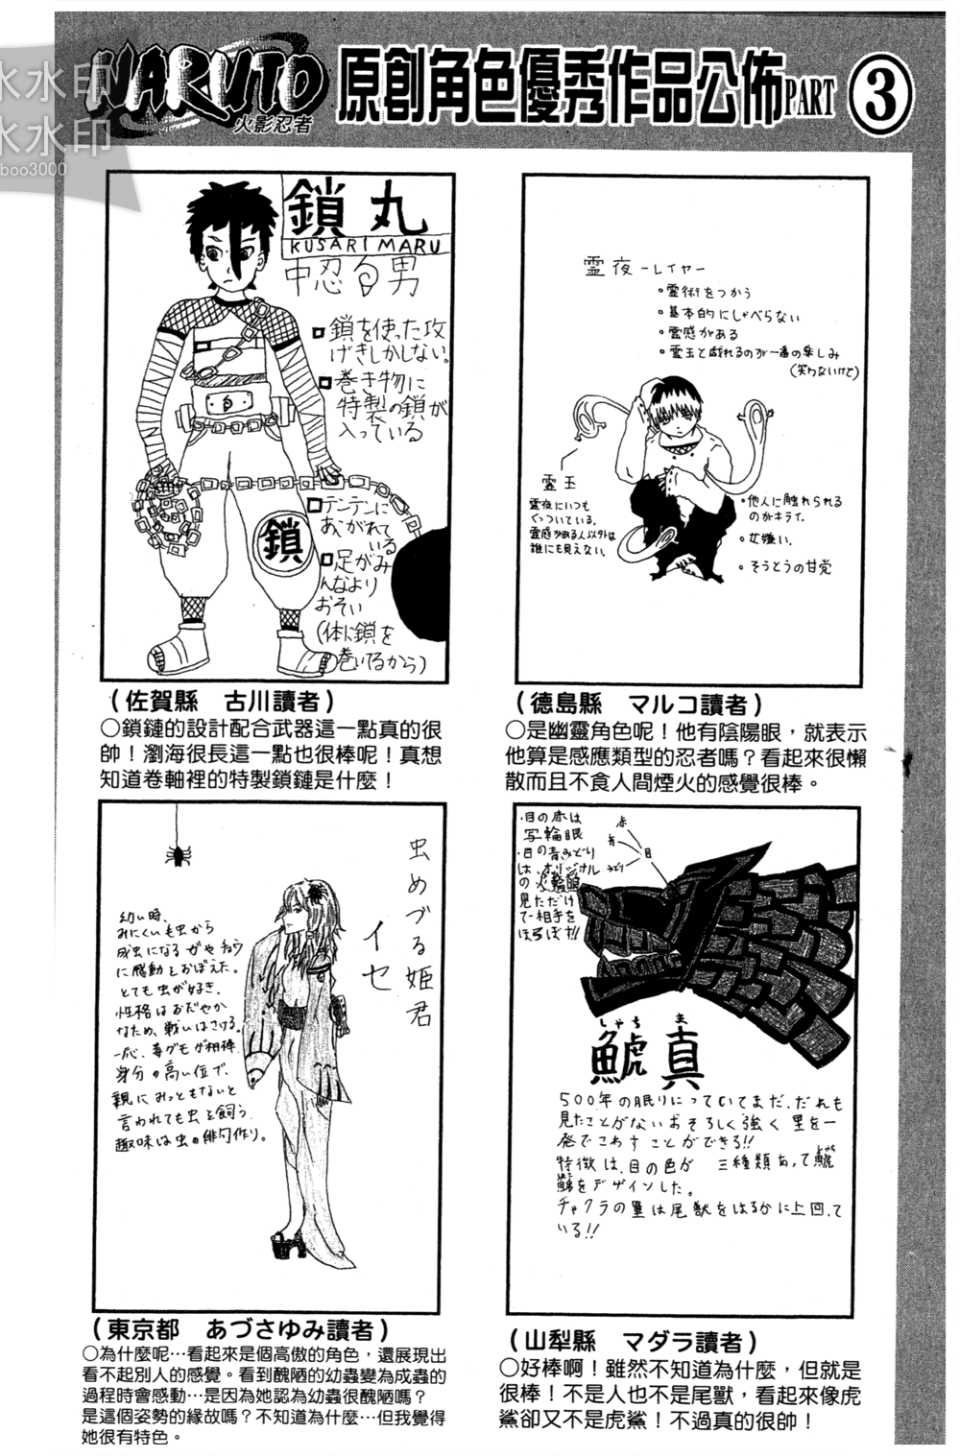 水水印
水水印
boo3000
NARUTO
火影忍者
原創角色優秀作品公佈PART 3
鎖丸
KUSARI MARU
中忍 男
鎖を使った攻
げきしかしない。
巻き物に
特製の鎖が
入っている
テンテンに
あこがれて
いる
足がみ
んなより
おそい
(体に鎖を
巻いてるから)
鎖
(佐賀縣 古川讀者)
○鎖鏈的設計配合武器這一點真的很
帥！瀏海很長這一點也很棒呢！真想
知道卷軸裡的特製鎖鏈是什麼！
霊夜-レイヤー
霊術をつかう
基本的にしゃべらない
霊感がある
霊玉と戯れるのが一番の楽しみ
(笑わないけど)
霊玉
霊夜にいつも
くっついている。
霊感がある人以外は
誰にも見えない。
他人に触れられる
のがキライ。
女嫌い。
そうとうの甘党
(德島縣 マルコ讀者)
○是幽靈角色呢！他有陰陽眼，就表示
他算是感應類型的忍者嗎？看起來很懶
散而且不食人間煙火的感覺很棒。
虫めづる姫君
イセ
幼い時、
みにくいも虫から
成虫になるがやチョウ
に感動をおぼえた。
とても虫が好き。
性格はおだやか
なため、戦いはさける。
一応、毒グモが相棒
身分の高い位で、
親にみっともないと
言われても虫を飼う
趣味は虫の俳句作り。
(東京都 あづさゆみ讀者)
○為什麼呢…看起來是個高傲的角色，還展現出
看不起別人的感覺。看到醜陋的幼蟲變為成蟲的
過程時會感動…是因為她認為幼蟲很醜陋嗎？
是這個姿勢的緣故嗎？不知道為什麼…但我覺得
她很有特色。
・目の赤は
写輪眼
・目の青みどり
はオリジナル
の
見ただけ
で相手を
ほろぼす!!
赤
青
目
みどり
しゃち ま
鯱真
500年の眠りについていてまだ、だれも
見たことがないおそろしく強く星を一
発でこわすことができる!!
特徴は、目の色が 三種類あって鯱
をデザインした。
チャクラの量は尾獣をはるかに上回って
いる!!
(山梨縣 マダラ讀者)
○好棒啊！雖然不知道為什麼，但就是
很棒！不是人也不是尾獸，看起來像虎
鯊卻又不是虎鯊！不過真的很帥！